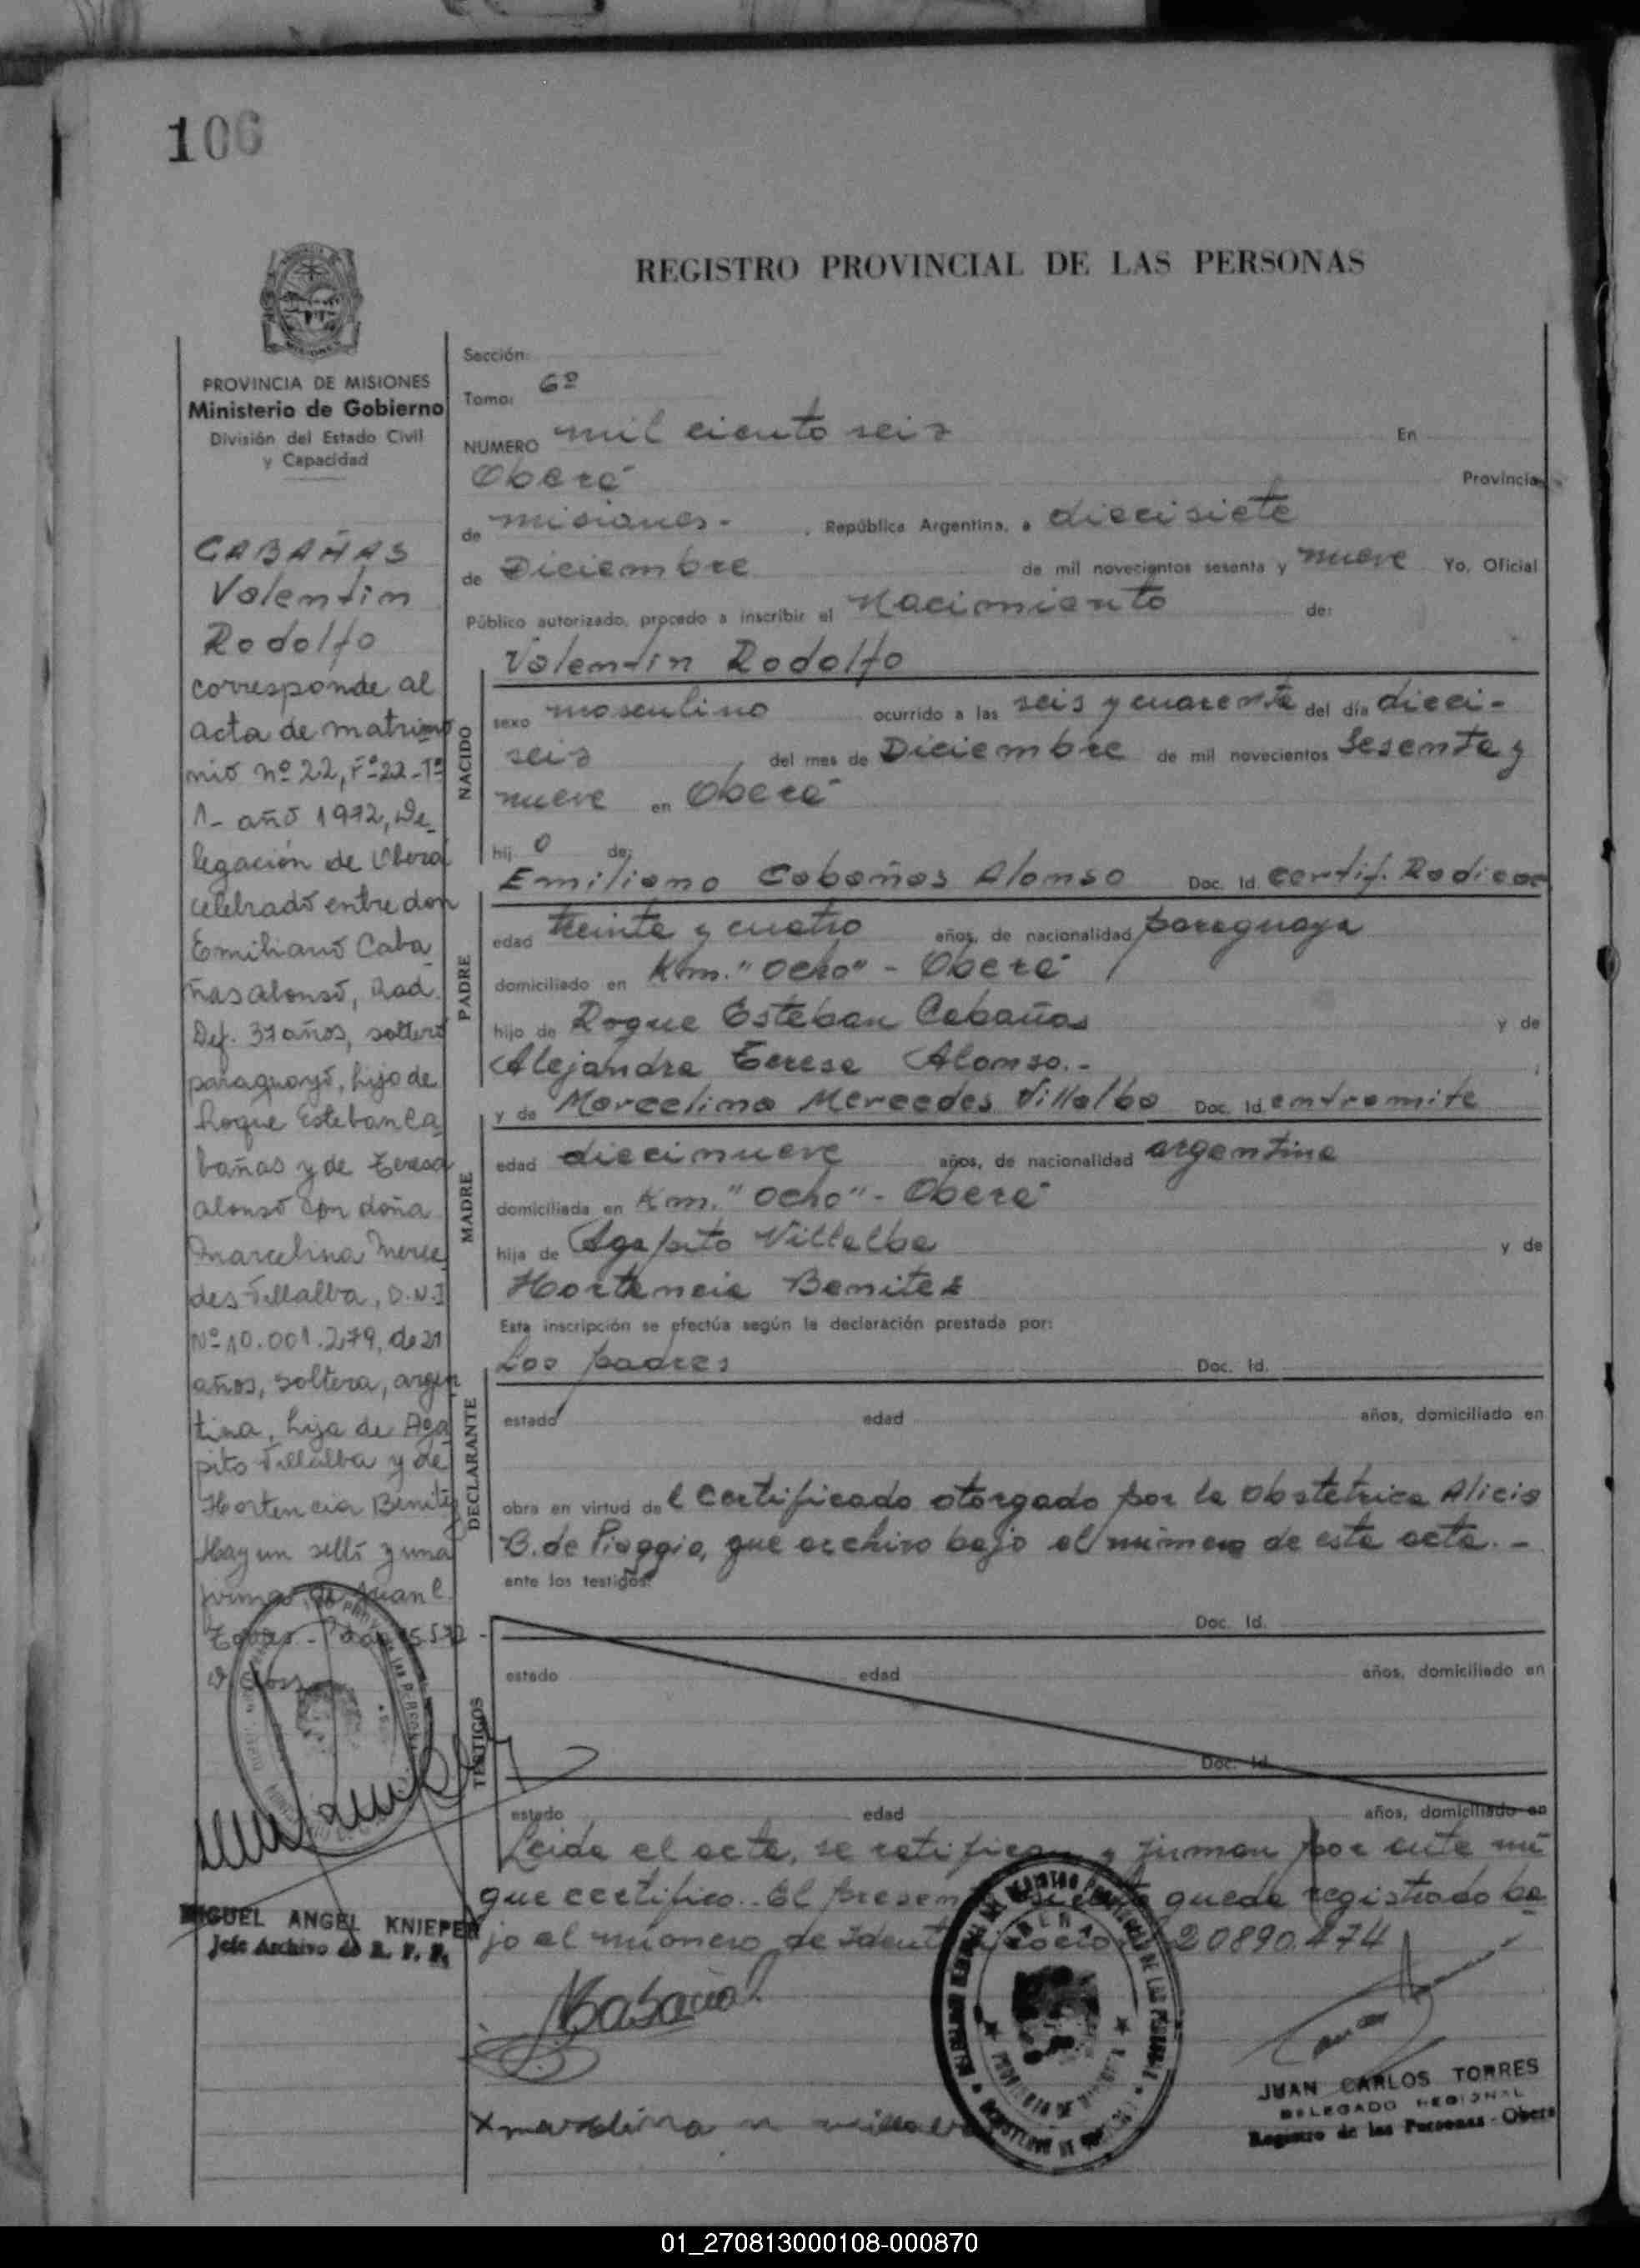 106
REGISTRO PROVINCIAL DE LAS PERSONAS
PROVINCIA DE MISIONES
Ministerio de Gobierno
División del Estado Civil
y Capacidad
CABAÑAS
Valentin
Rodolfo
corresponde al
acta de matrimo
nio nº 22, Fº 22-Tº
1- año 1972, De
legación de Oberá
celebrado entre don
Emiliano Caba
ñas Alonso, Rad.
Def. 37 años, soltero
paraguayo, hijo de
Roque Esteban Ca
bañas y de Teresa
Alonso con doña
Marcelina Merce
des Villalba, D.N.I
Nº 10.001.279, de 21
años, soltera, argen
tina, hija de Aga
pito Villalba y de
Hortencia Benitez
Hay un sello y una
firma de Juan C.
MIGUEL ANGEL KNIEPER
Jefe Archivo de R. P. P.
Sección:
Tomo: 6º
NUMERO mil ciento seis En
Oberá Provincia
de misiones.- , República Argentina, a diecisiete
de Diciembre de mil novecientos sesenta y nueve Yo, Oficial
Público autorizado, procedo a inscribir el Nacimiento de:
Valentin Rodolfo
NACIDO
sexo masculino ocurrido a las seis y cuarenta del día dieci-
seis del mes de Diciembre de mil novecientos Sesenta y
nueve en Oberá
hij o de:
Emiliano Cabañas Alonso Doc. Id. certif. Radicac
PADRE
edad treinta y cuatro años, de nacionalidad paraguaya
domiciliado en Km. "Ocho" - Oberá
hijo de Roque Esteban Cabañas y de
Alejandra Teresa Alonso.-
y de Marcelina Mercedes Villalba Doc. Id. entramite
MADRE
edad diecinueve años, de nacionalidad argentina
domiciliada en Km. "Ocho" - Oberá
hija de Agapito Villalba y de
Hortencia Benitez
Esta inscripción se efectúa según la declaración prestada por:
DECLARANTE
Los padres Doc. Id.
estado edad años, domiciliado en
obra en virtud de l certificado otorgado por la obstetrica Alicia
B. de Piaggio, que archivo bajo el número de esta acta. -
ante los testigos:
TESTIGOS
Doc. Id.
estado edad años, domiciliado en
Doc. Id.
estado edad años, domiciliado en
Leida el acta, se ratifican y firman por ante mi
que certifico. El presente queda registrado ba
jo el número de Identificación 20890.474
JUAN CARLOS TORRES
DELEGADO REGIONAL
Registro de las Personas - Oberá
01_270813000108-000870